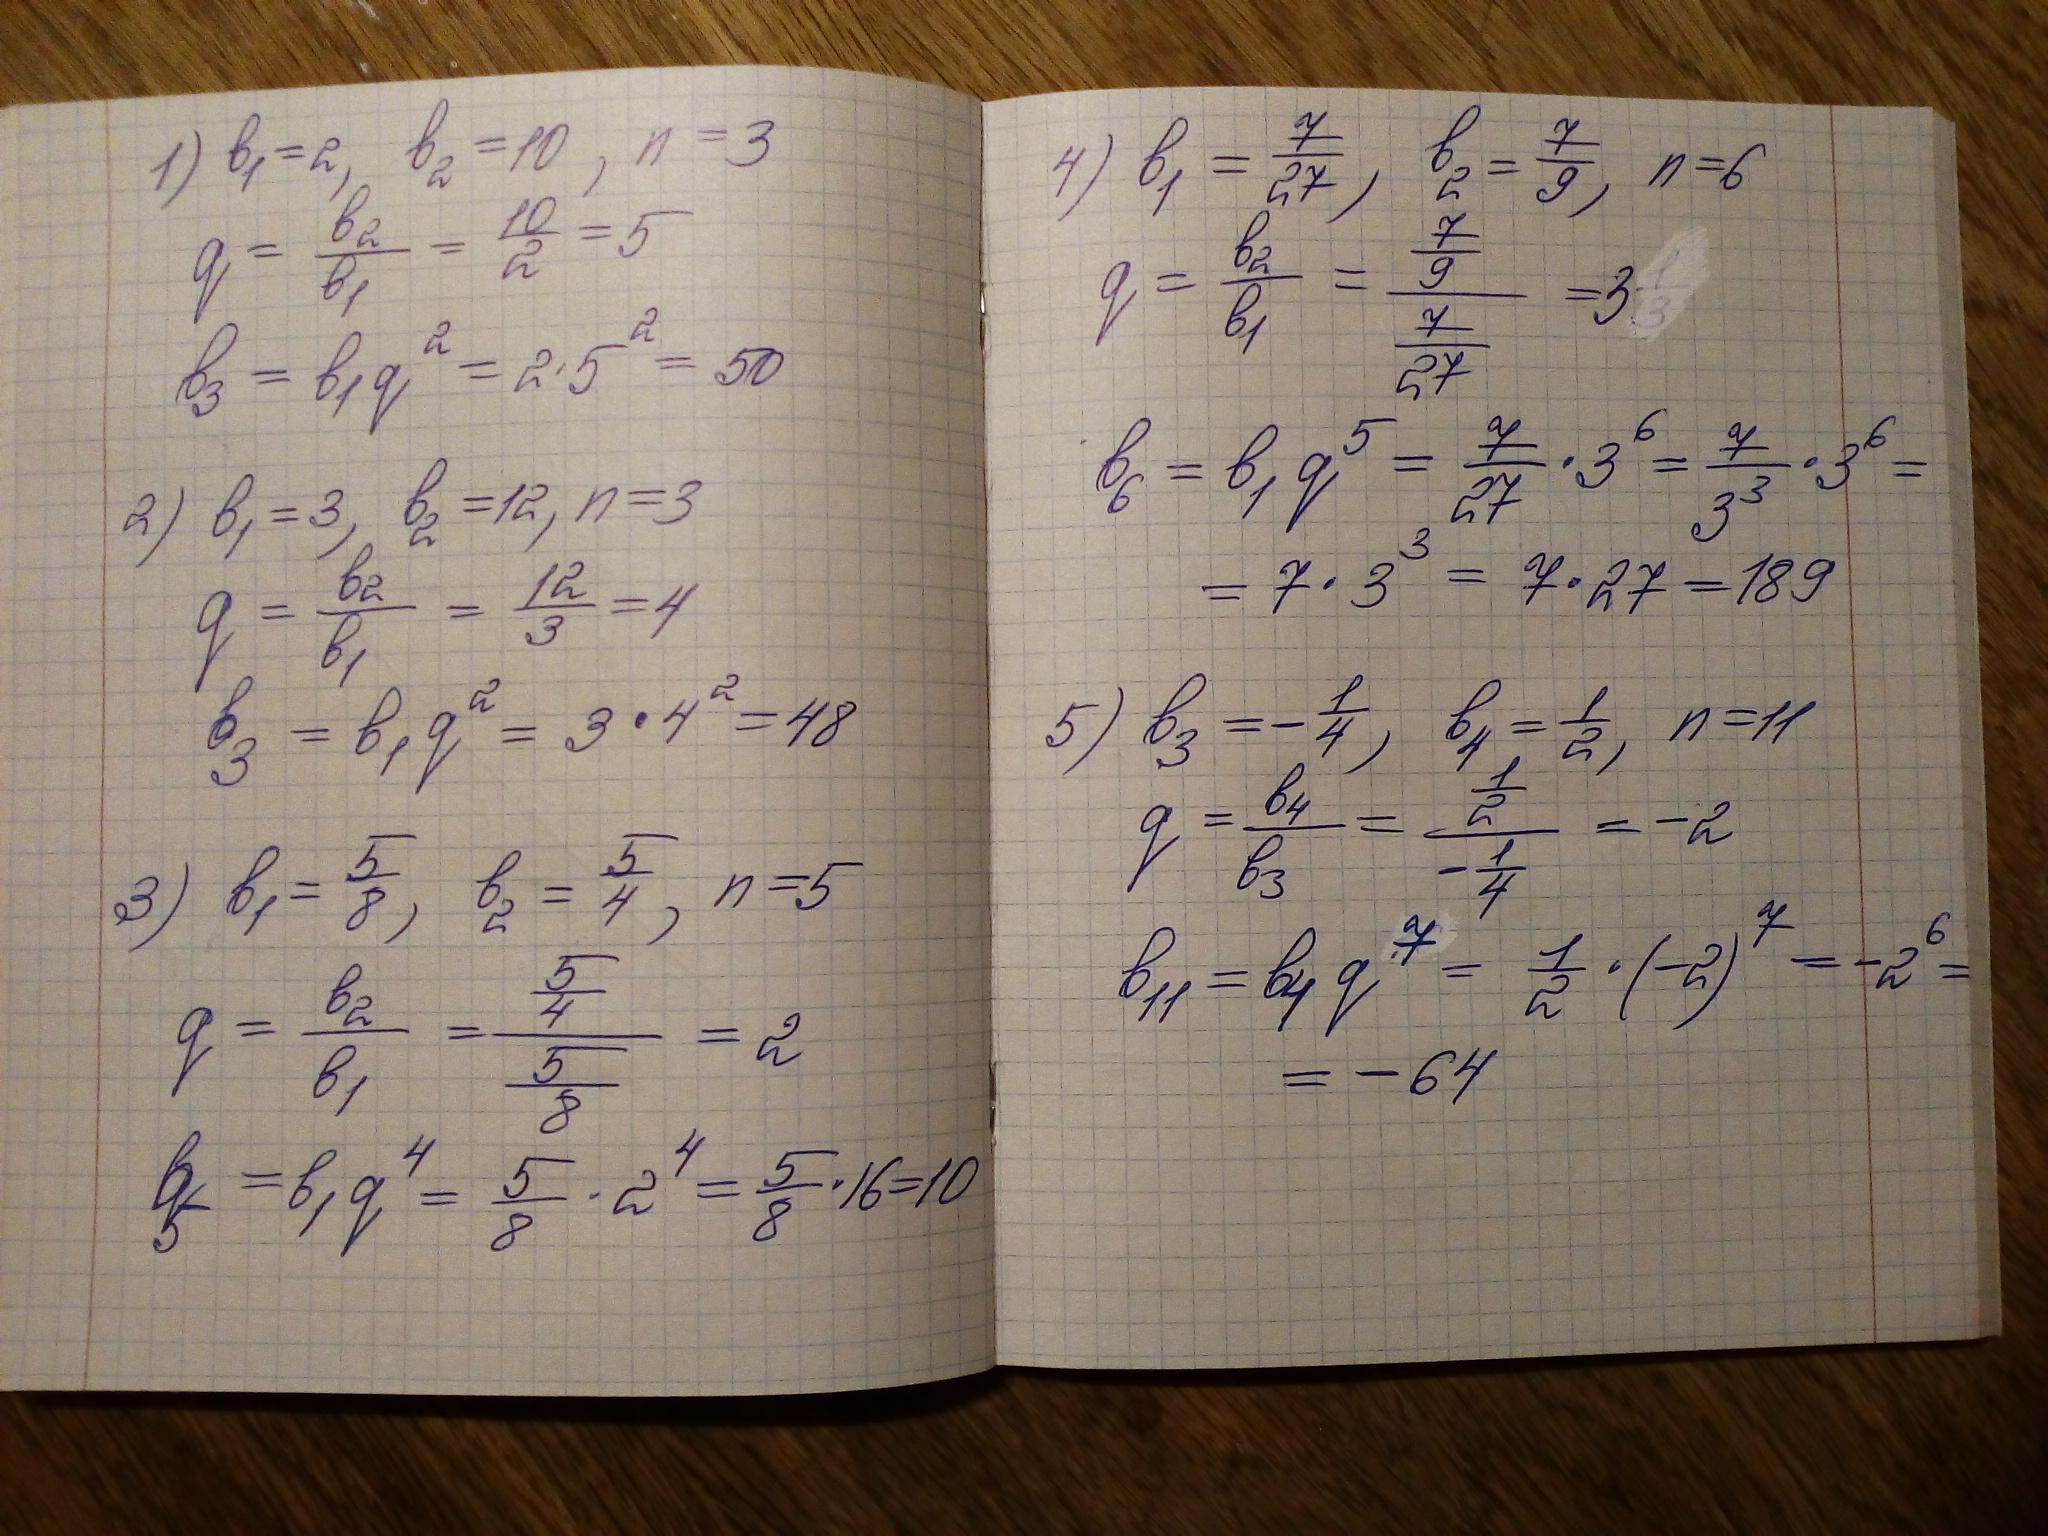 1) b₁ = 2, b₂ = 10, n = 3
q = b₂/b₁ = 10/2 = 5
b₃ = b₁q² = 2·5² = 50
2) b₁ = 3, b₂ = 12, n = 3
q = b₂/b₁ = 12/3 = 4
b₃ = b₁q² = 3·4² = 48
3) b₁ = 5/8, b₂ = 5/4, n = 5
q = b₂/b₁ = (5/4)/(5/8) = 2
b₅ = b₁q⁴ = 5/8·2⁴ = 5/8·16 = 10
4) b₁ = 7/27, b₂ = 7/9, n = 6
q = b₂/b₁ = (7/9)/(7/27) = 3
b₆ = b₁q⁵ = 7/27·3⁶ = 7/3³·3⁶ =
= 7·3³ = 7·27 = 189
5) b₃ = -1/4, b₄ = 1/2, n = 11
q = b₄/b₃ = (1/2)/(-1/4) = -2
b₁₁ = b₄q⁷ = 1/2·(-2)⁷ = -2⁶ =
= -64